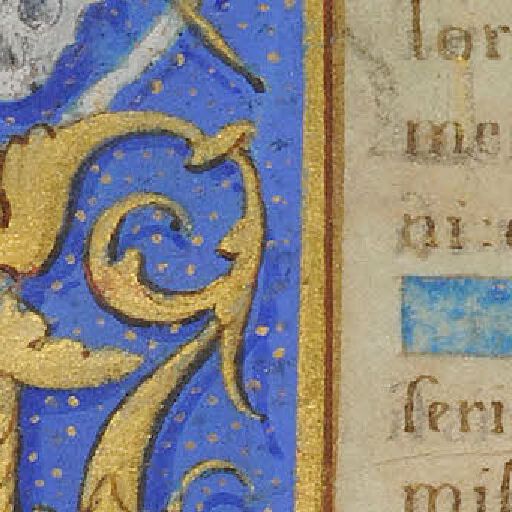 lor
me
ni:
seri
mis